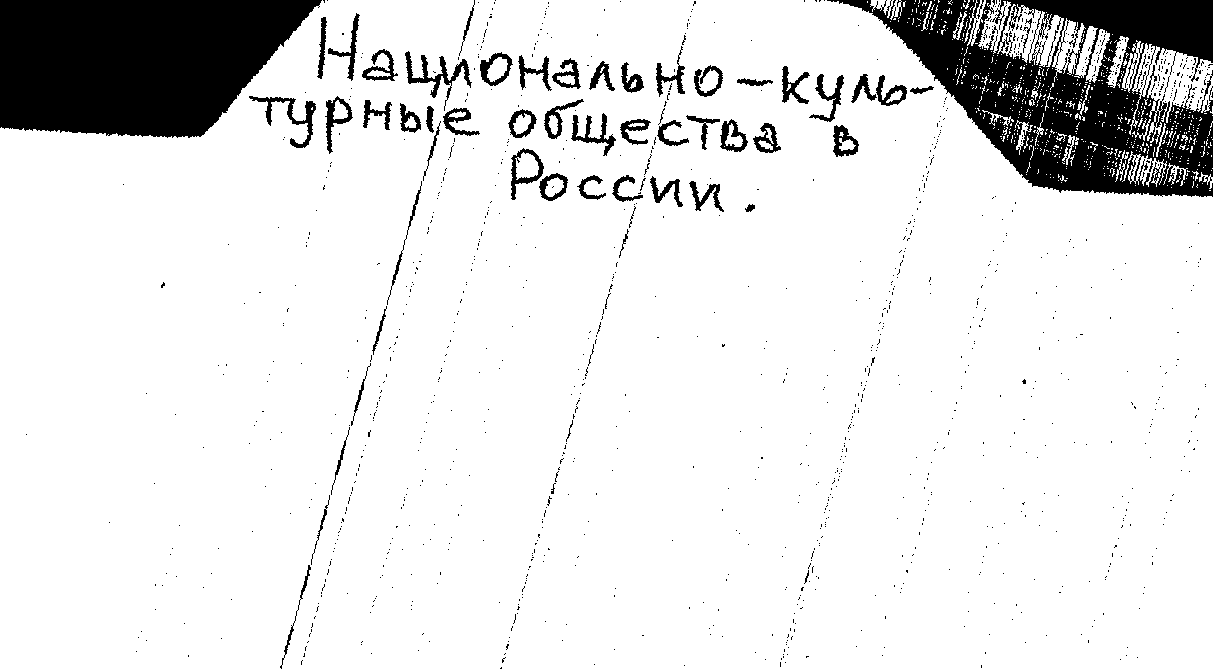 Национально-куль-
турные общества в
России.